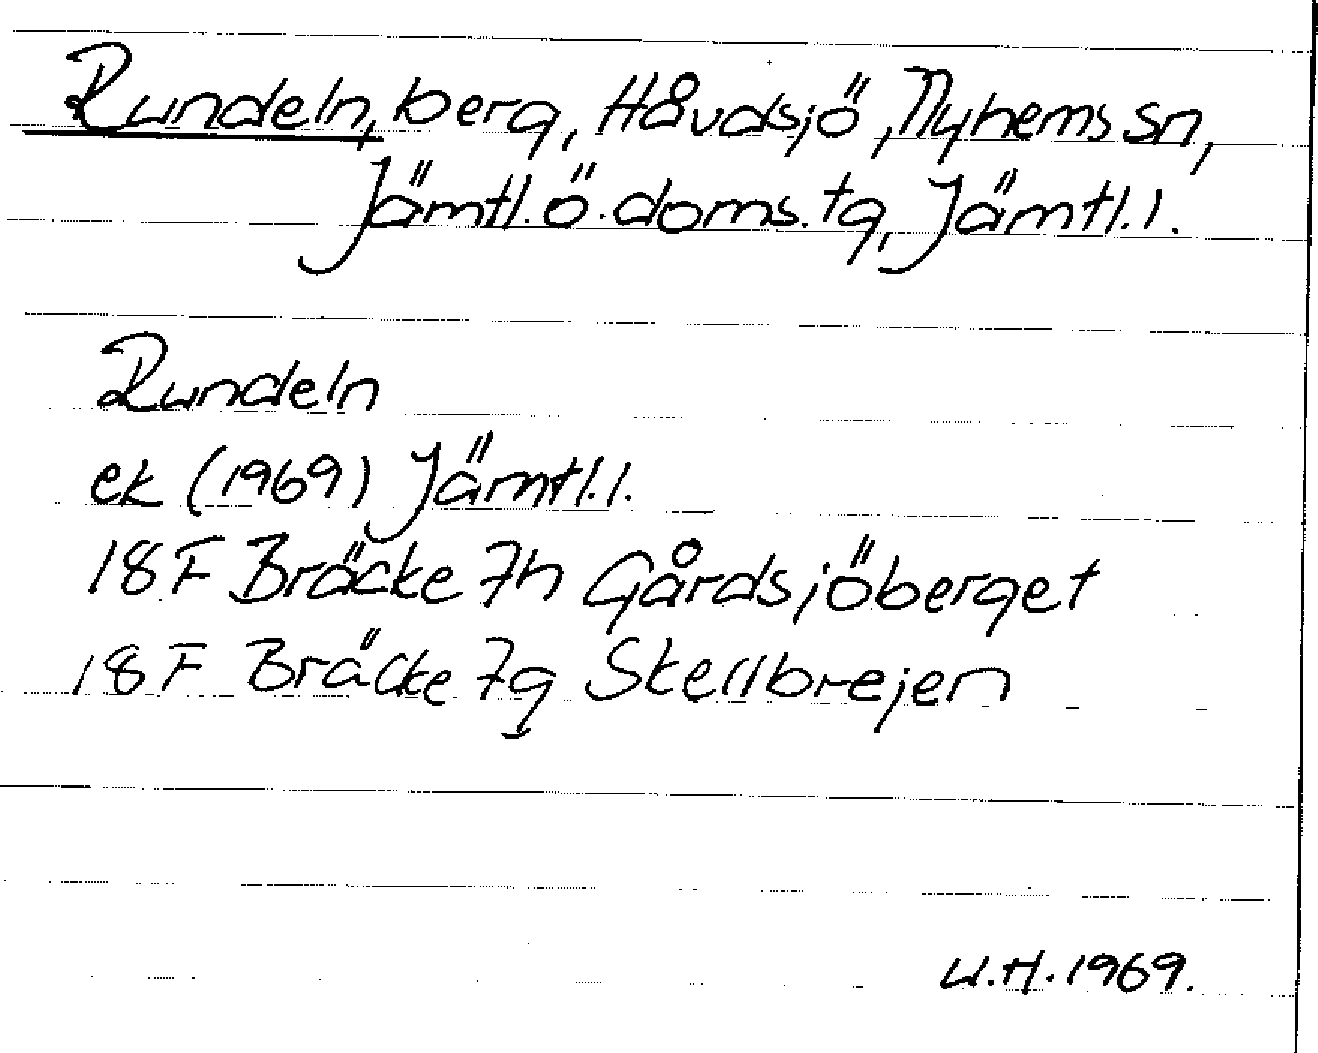 Rundeln, berg, Håvdsjö, Nyhems sn,
Jämtl. ö. doms. tg, Jämtl. l.
Rundeln
ek (1969) Jämtl. l.
18 F Bräcke 7h Gårdsjöberget
18 F Bräcke 7g Skellbrejen
U.H. 1969.